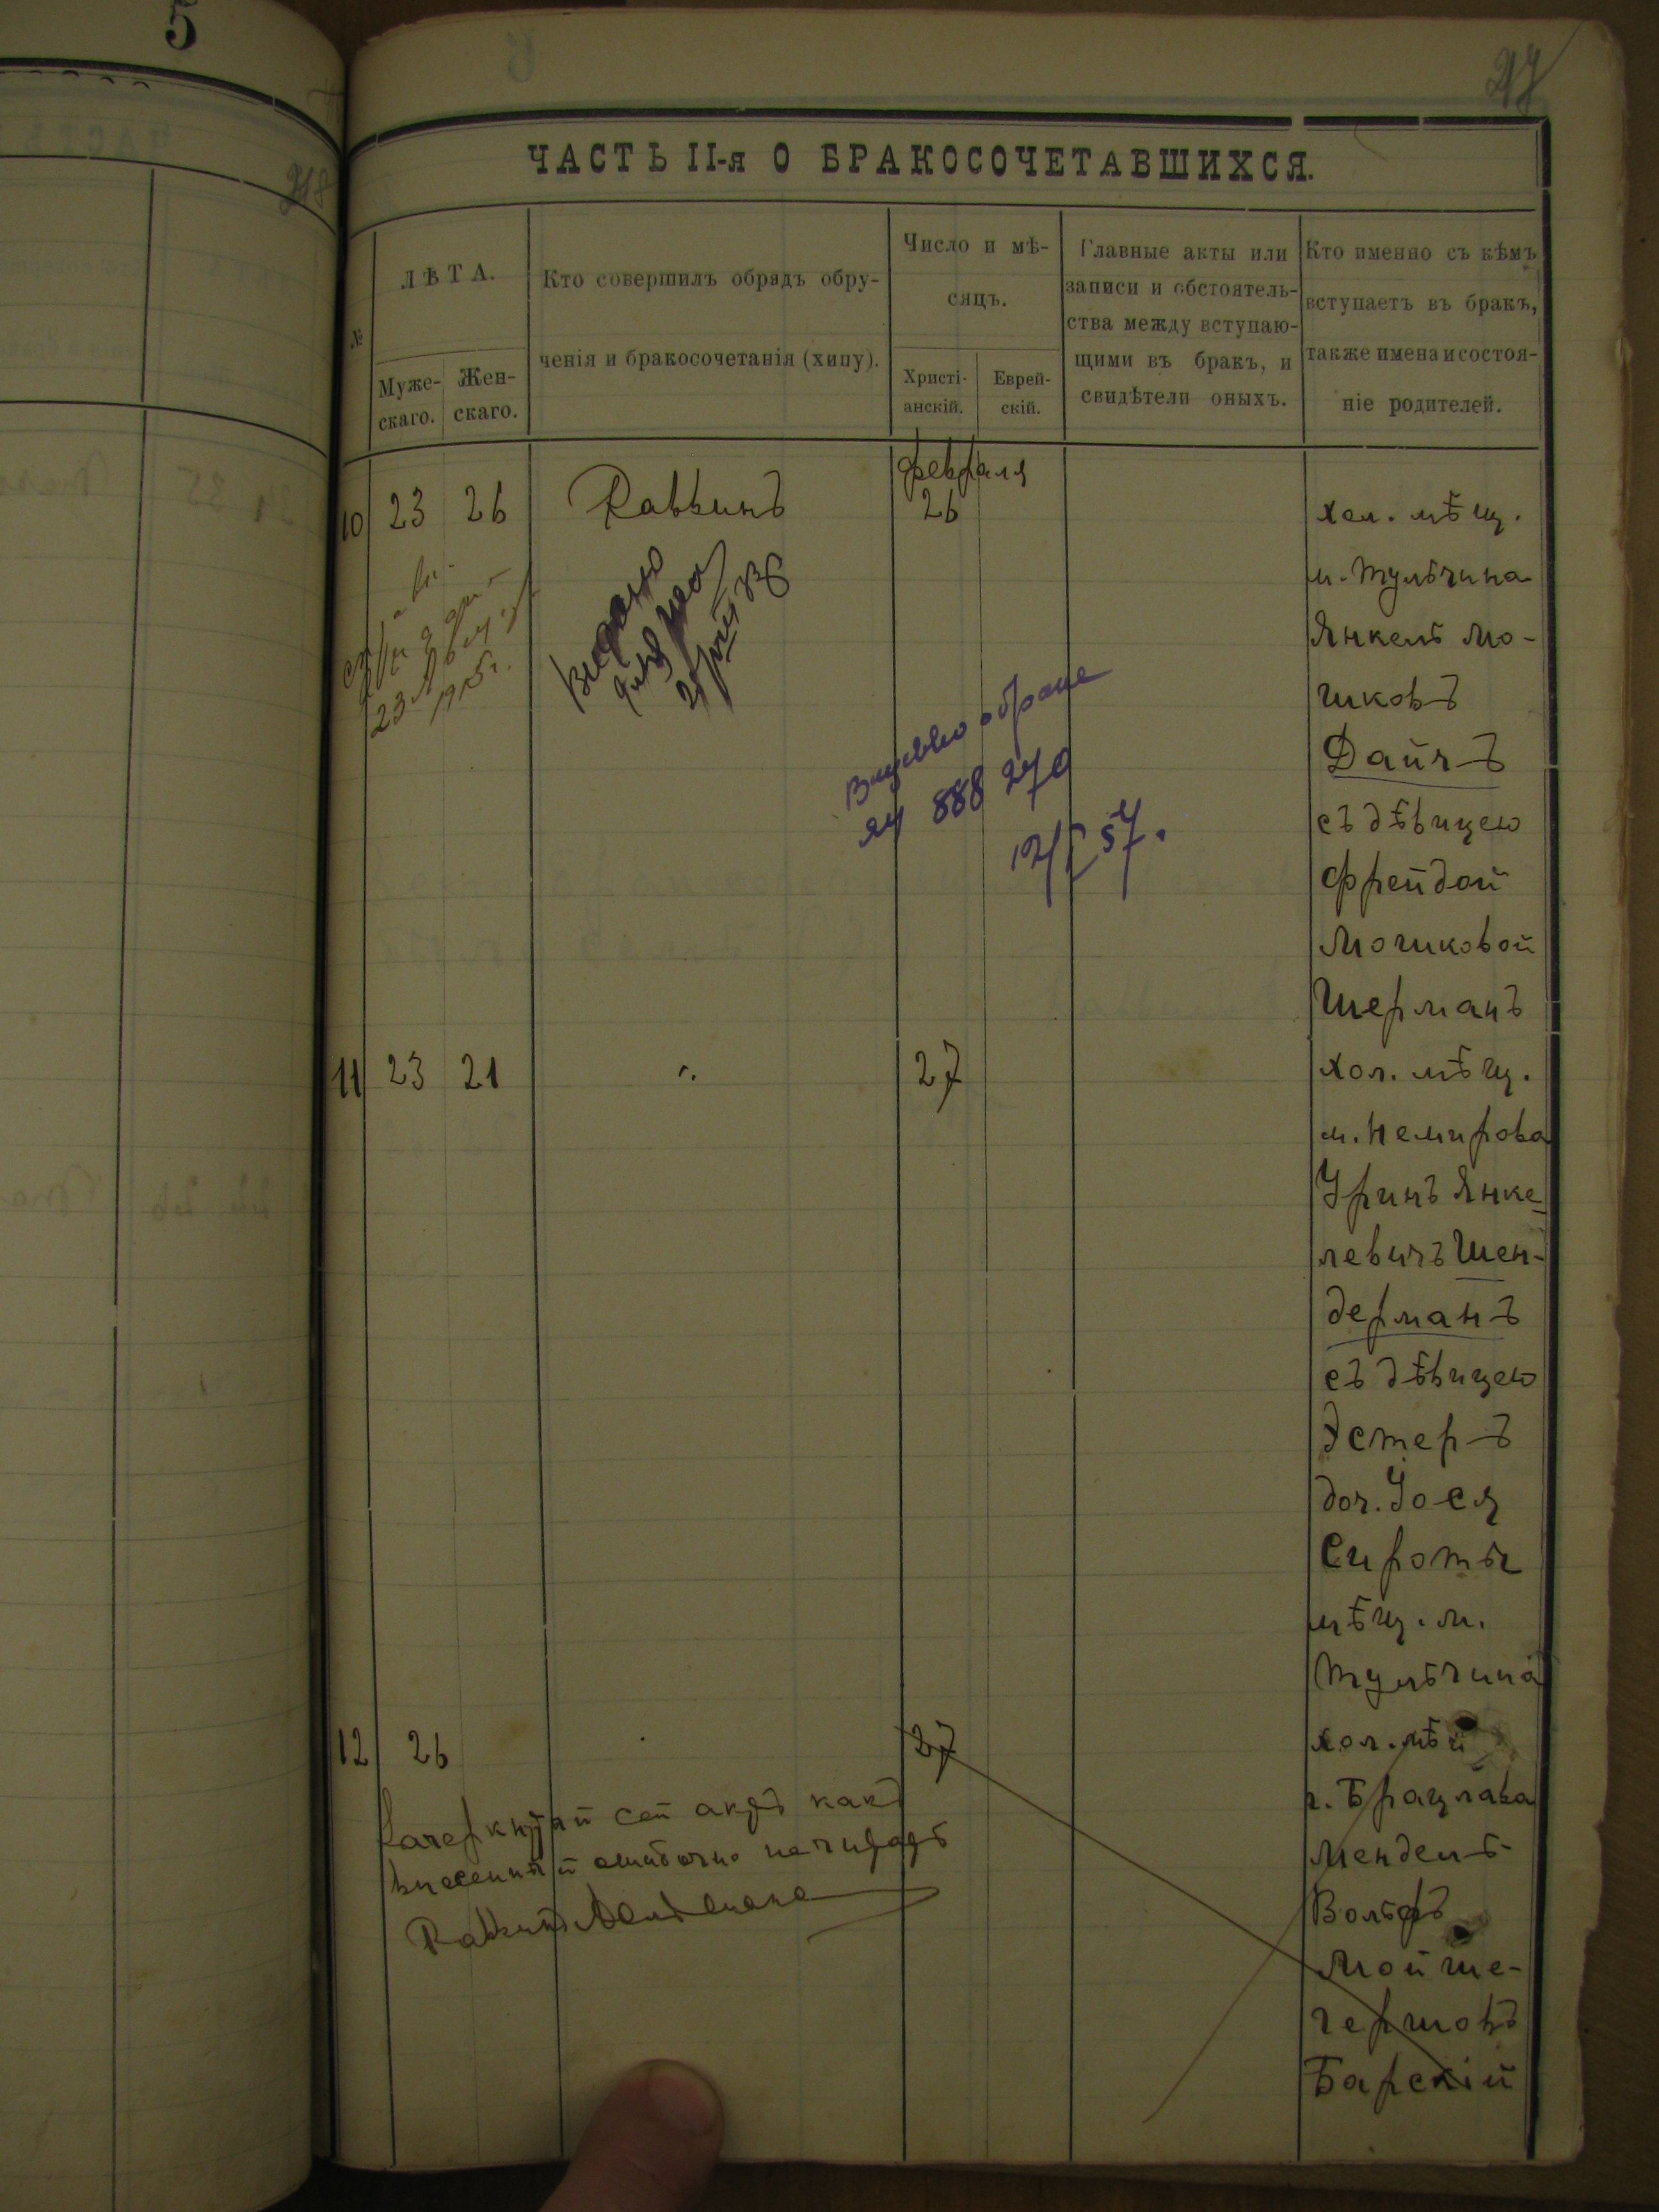 5
ЧАСТЬ II-я О БРАКОСОЧЕТАВШИХСЯ.
№
ЛѢТА.
Муже-
скаго.
Жен-
скаго.
Кто совершилъ обрядъ обру-
ченія и бракосочетанія (хипу).
Число и мѣ-
сяцъ.
Христі-
анскій.
Еврей-
скій.
Главные акты или
записи и обстоятель-
ства между вступаю-
щими въ бракъ, и
свидѣтели оныхъ.
Кто именно съ кѣмъ
вступаетъ въ бракъ,
также имена и состоя-
ніе родителей.
10 23 26 Раввинъ
февраля
26
хол. мѣщ.
м. Тульчина
Янкель Мо-
шковъ
Дайчъ
съ дѣвицею
Фрейдой
Мошковой
Шерманъ
23
1915г.
о браке
888 270
57.
11 23 21 27
хол. мѣщ.
м. Немирова
Янке-
левичъ Шен-
дерманъ
съ дѣвицею
Эстеръ
доч. Іося
Сироты
мѣщ. м.
Тульчина
12 26 27
хол. мѣщ
г. Брацлава
Мендель
Вольфъ
Мойше-
Гершовъ
Барскій
сей актъ какъ
внесенный ошибочно не читать
Раввинъ